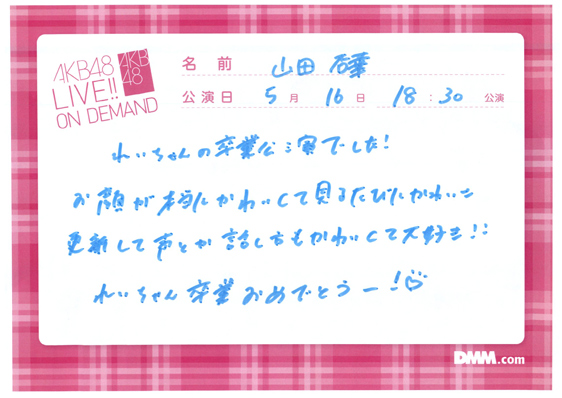 AKB48
LIVE!!
ON DEMAND
AKB
48
名前 山田 杏華
公演日 5月 16日 18:30 公演
れいちゃんの卒業公演でした!
お顔が本当にかわいくて見るたびにかわいこ
更新して声とか話し方もかわいくて大好き!!
れいちゃん卒業おめでとうー!♡
DMM.com